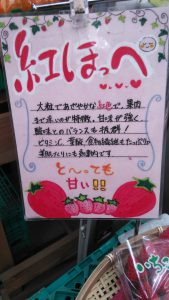 紅ほっぺ
大粒であざやかな紅色で、果肉
まで赤いのが特徴。甘みが強く
酸味とのバランスも抜群!
ビタミンC、葉酸、食物繊維もたっぷりで
美肌づくりにも効果的です
と〜っても
甘い!!
いちご